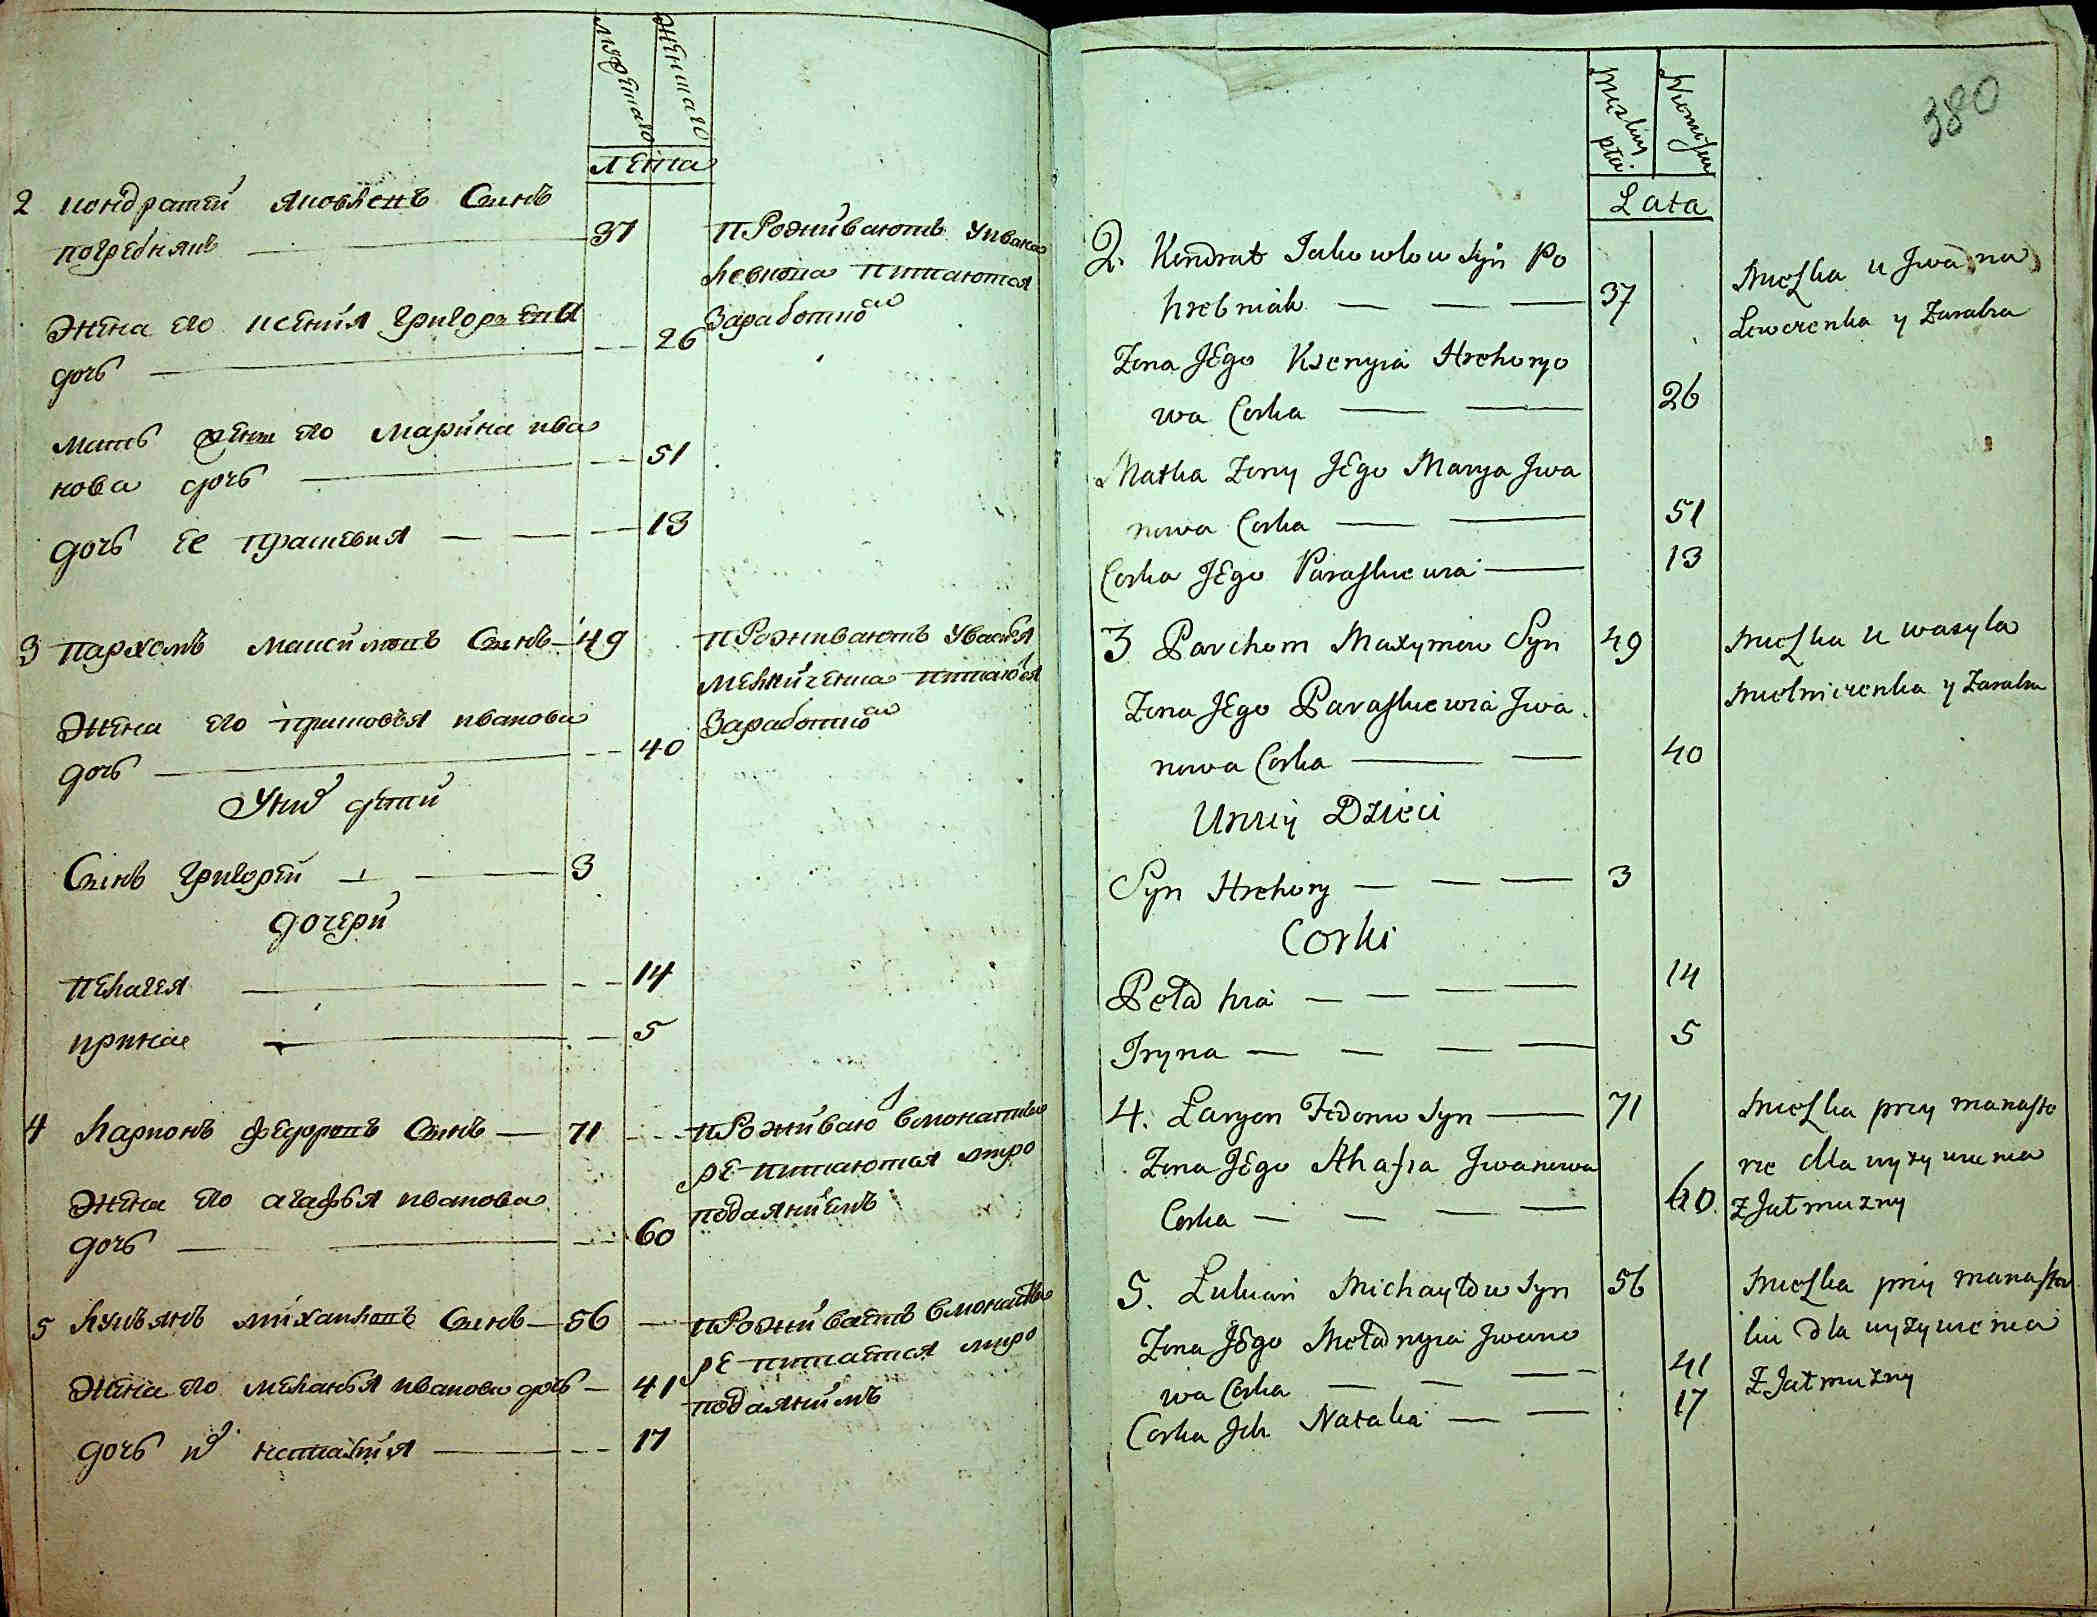 мужеска
женска
лета
2 кондратей яковленъ Синъ
погребнякъ — 37
Проживаютъ уивана
левкона питаются
Заработкою
Жена его ксения григорьева
дочь — 26
мать жены его марина ива
нова дочь — 51
дочь ее прасковия — — 13
3 пархомъ максимовъ Синъ — 49
Проживаютъ увасиля
мелниченка питаются
Заработкою
Жена его прасковья иванова
дочь — 40
Унихъ дети
Синъ григорей — — 3
дочери
пелагея — 14
ирина — 5
4 ларионъ федоровъ Синъ — 71
проживаютъ вмонасти
ре питаются миро
подаяниемъ
Жена его агафья иванова
дочь — 60
5 лукьянъ михаиловъ Синъ — 56
проживаетъ вмонасти
ре питается миро
подаяниемъ
Жена его меланья иванова дочь — 41
дочь их наталия — 17
380
Męzkiey
płci
Lata
2. Kondrat Jakowlow Syn Po
hrebniak — — — 37
Mieszka u Jwana
Lewczenka y Zarabia
Zona JEgo Ksenyia Hrehoryo
wa Corka — — 26
Matka Zony JEgo Marya Jwa
nowa Corka — — 51
Corka JEgo Paraskiewia — 13
3 Parchom Maxymow Syn 49
Mieszka u wasyla
Mielniczenka y Zarabia
Zona JEgo Paraskiewia Jwa
nowa Corka — — 40
Unich Dzieci
Syn Hrehory — — — 3
Corki
Peład hia — — — — 14
Jryna — — — — 5
4. Laryon Fedorow Syn — 71
Mieszka przy manaste
rze dla wyzywienia
z Jałmuzny
Zona JEgo Ahafia Jwanowa
Corka — — — — 60.
5. Lukian Michayłow Syn 56
Mieszka przy manaster
dla wyzywienia
z Jałmuzny
Zona JEgo Meładnyia Jwano
wa Corka — — — 41
Corka Jch Natalia — — 17